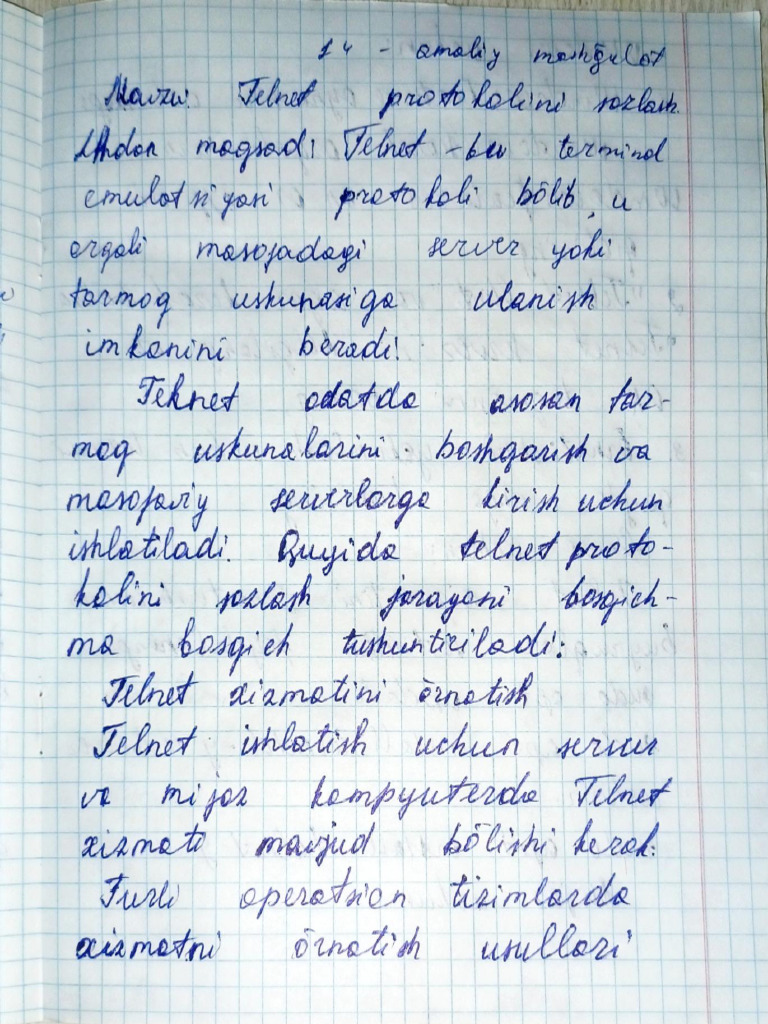 14 - amaliy mashğulot
Mavzu: Telnet protokolini sozlash.
Ishdan maqsad: Telnet - bu terminal
emulatsiyasi protokoli bõlib, u
orqali masofadagi server yoki
tarmoq uskunasiga ulanish
imkonini beradi.
Telnet odatda asosan tar-
moq uskunalarini boshqarish va
masofaviy serverlarga kirish uchun
ishlatiladi. Quyida telnet proto-
kolini sozlash jarayoni bosqich-
ma bosqich tushuntiriladi:
Telnet xizmatini õrnatish
Telnet ishlatish uchun server
va mijoz kompyuterda Telnet
xizmati mavjud bõlishi kerak.
Turli operatsion tizimlarda
xizmatni õrnatish usullari